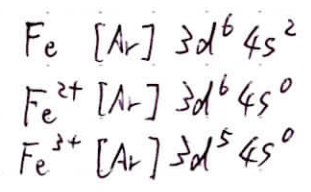 Fe [Ar] 3d⁶ 4s²
Fe²⁺ [Ar] 3d⁶ 4s⁰
Fe³⁺ [Ar] 3d⁵ 4s⁰